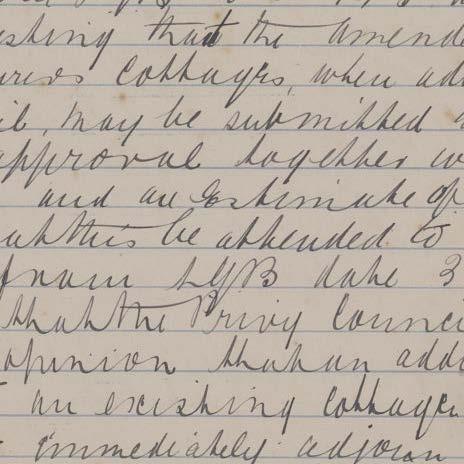 esting that the amende
ures cottages, when ad
il, may be submitted
approval together w
and an Estimate of
that this be attended to
from LGB date 3
that the Privy Counci
opinion that an addi
an existing cottage
immediately adjoin